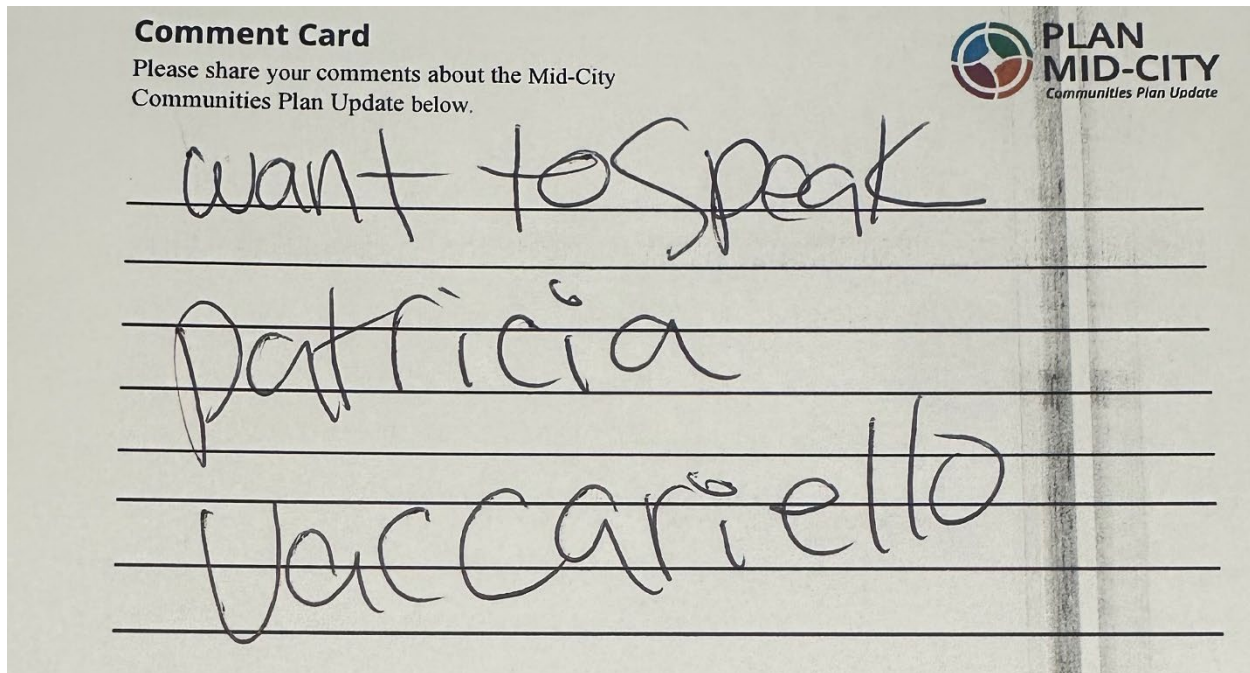 Comment Card
Please share your comments about the Mid-City
Communities Plan Update below.
PLAN
MID-CITY
Communities Plan Update
want to speak
patricia
Vaccariello